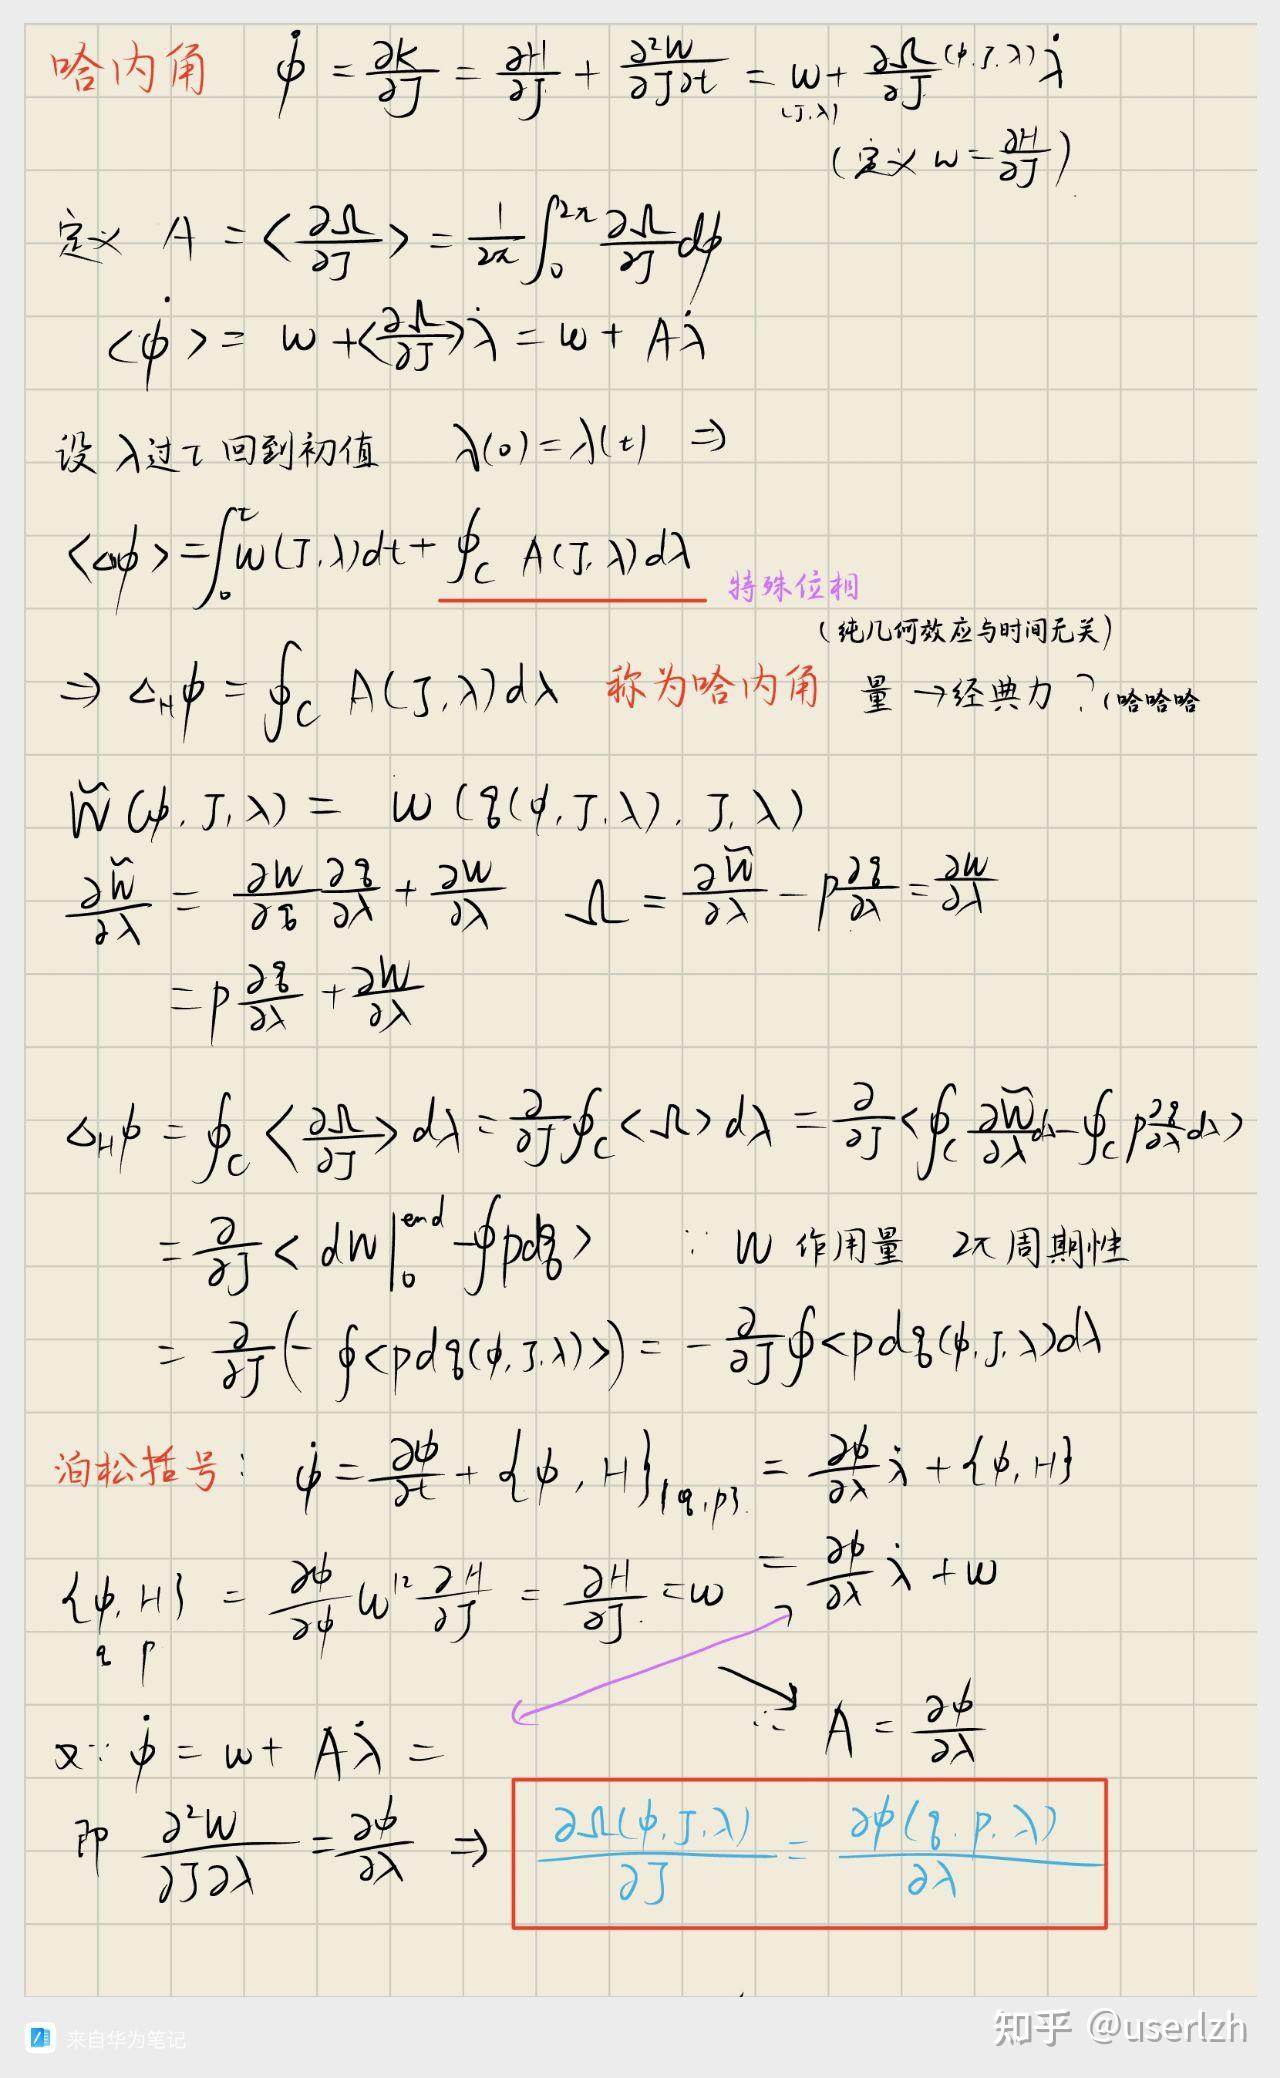 哈内角 φ̇ = ∂K/∂J = ∂H/∂J + ∂²W/∂J∂t = w + ∂Ω/∂J (φ.J.λ) λ̇
(J,λ)
(定义 w = ∂H/∂J)
定义 A = <∂Ω/∂J> = 1/2π ∫₀^2π ∂Ω/∂J dφ
<φ̇> = w + <∂Ω/∂J> λ̇ = w + Aλ̇
设 λ过τ 回到初值 λ(0) = λ(t) ⇒
<Δφ> = ∫₀^τ w(J,λ)dt + ∮c A(J,λ)dλ
特殊位相
(纯几何效应与时间无关)
⇒ Δ_Hφ = ∮c A(J,λ)dλ 称为哈内角 量→经典力?(哈哈哈
W̃(φ,J,λ) = W(q(φ,J,λ),J,λ)
∂W̃/∂λ = ∂W/∂q ∂q/∂λ + ∂W/∂λ Ω = ∂W̃/∂λ - p∂q/∂λ = ∂W/∂λ
= p ∂q/∂λ + ∂W/∂λ
Δ_Hφ = ∮c <∂Ω/∂J> dλ = ∂/∂J ∮c <Ω> dλ = ∂/∂J <∮c ∂W̃/∂λ dλ - ∮c p∂q/∂λ dλ>
= ∂/∂J < dW|₀^end - ∮pdq> ∵ W 作用量 2π周期性
= ∂/∂J (- ∮<pdq(φ,J,λ)>) = - ∂/∂J ∮<pdq(φ,J,λ)dλ
泊松括号: φ̇ = ∂φ/∂t + {φ,H}_{q,p} = ∂φ/∂λ λ̇ + {φ,H}
{φ,H} = ∂φ/∂φ w¹² ∂H/∂J = ∂H/∂J = w = ∂φ/∂λ λ̇ + w
q p
∴ A = ∂φ/∂λ
又∵ φ̇ = w + Aλ̇ =
即 ∂²W/∂J∂λ = ∂φ/∂λ ⇒ ∂Ω(φ,J,λ)/∂J = ∂φ(q,p,λ)/∂λ
来自华为笔记
知乎 @userlzh